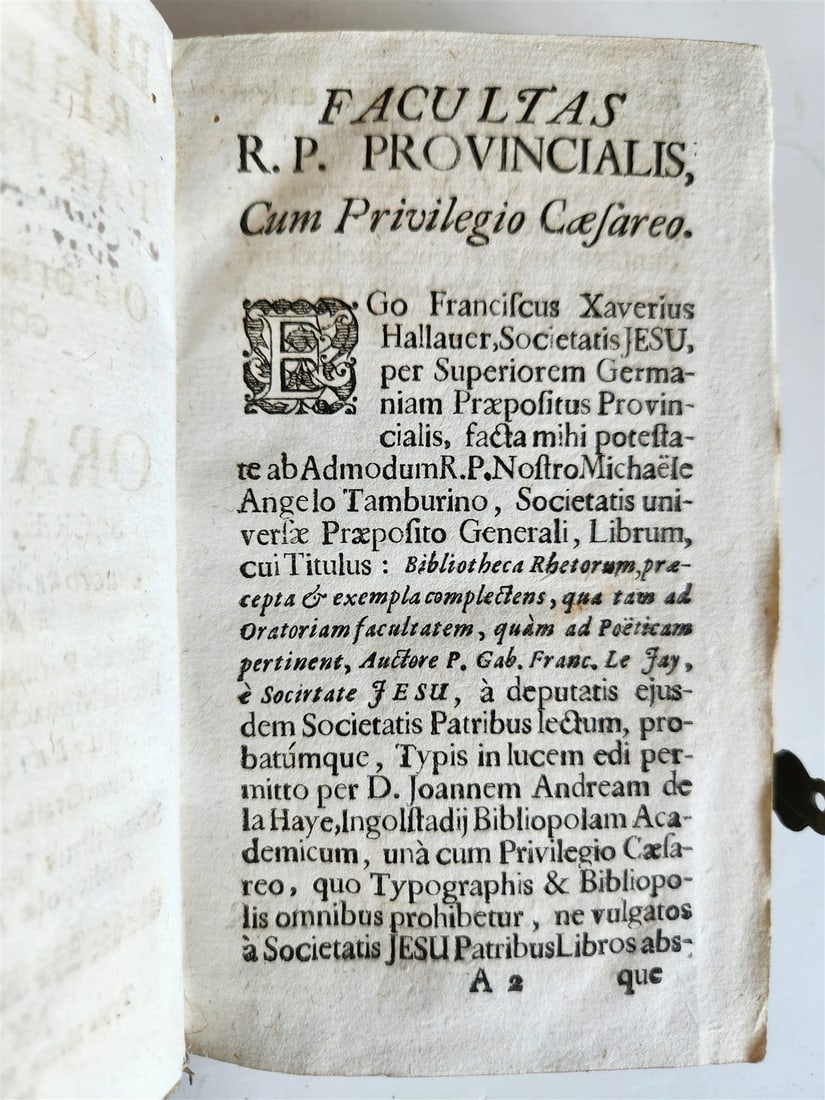 FACULTAS
R. P. PROVINCIALIS,
Cum Privilegio Cæſareo.
EGo Franciſcus Xaverius
Hallauer, Societatis JESU,
per Superiorem Germa-
niam Præpoſitus Provin-
cialis, facta mihi poteſta-
te ab Admodum R. P. Noſtro Michaële
Angelo Tamburino, Societatis uni-
verſæ Præpoſito Generali, Librum,
cui Titulus : Bibliotheca Rhetorum, præ-
cepta & exempla complectens, qua tam ad
Oratoriam facultatem, quàm ad Poëticam
pertinent, Auctore P. Gab. Franc. Le Jay,
è Socirtate JESU, à deputatis ejus-
dem Societatis Patribus lectum, pro-
batúmque, Typis in lucem edi per-
mitto per D. Joannem Andream de
la Haye, Ingolſtadij Bibliopolam Aca-
demicum, unà cum Privilegio Cæſa-
reo, quo Typographis & Bibliopo-
lis omnibus prohibetur, ne vulgatos
à Societatis JESU Patribus Libros abs-
A 2 que